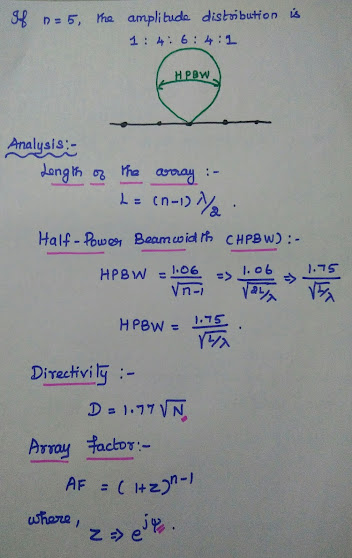 If n = 5, the amplitude distribution is
1 : 4 : 6 : 4 : 1
HPBW
Analysis:-
Length of the array :-
L = (n-1) λ/2 .
Half-Power Beamwidth (HPBW) :-
HPBW = 1.06/√n-1 => 1.06/√2L/λ => 1.75/√L/λ
HPBW = 1.75/√L/λ .
Directivity :-
D = 1.77 √N .
Array factor:-
AF = (1+z)^n-1
where,
z => e^jψ .